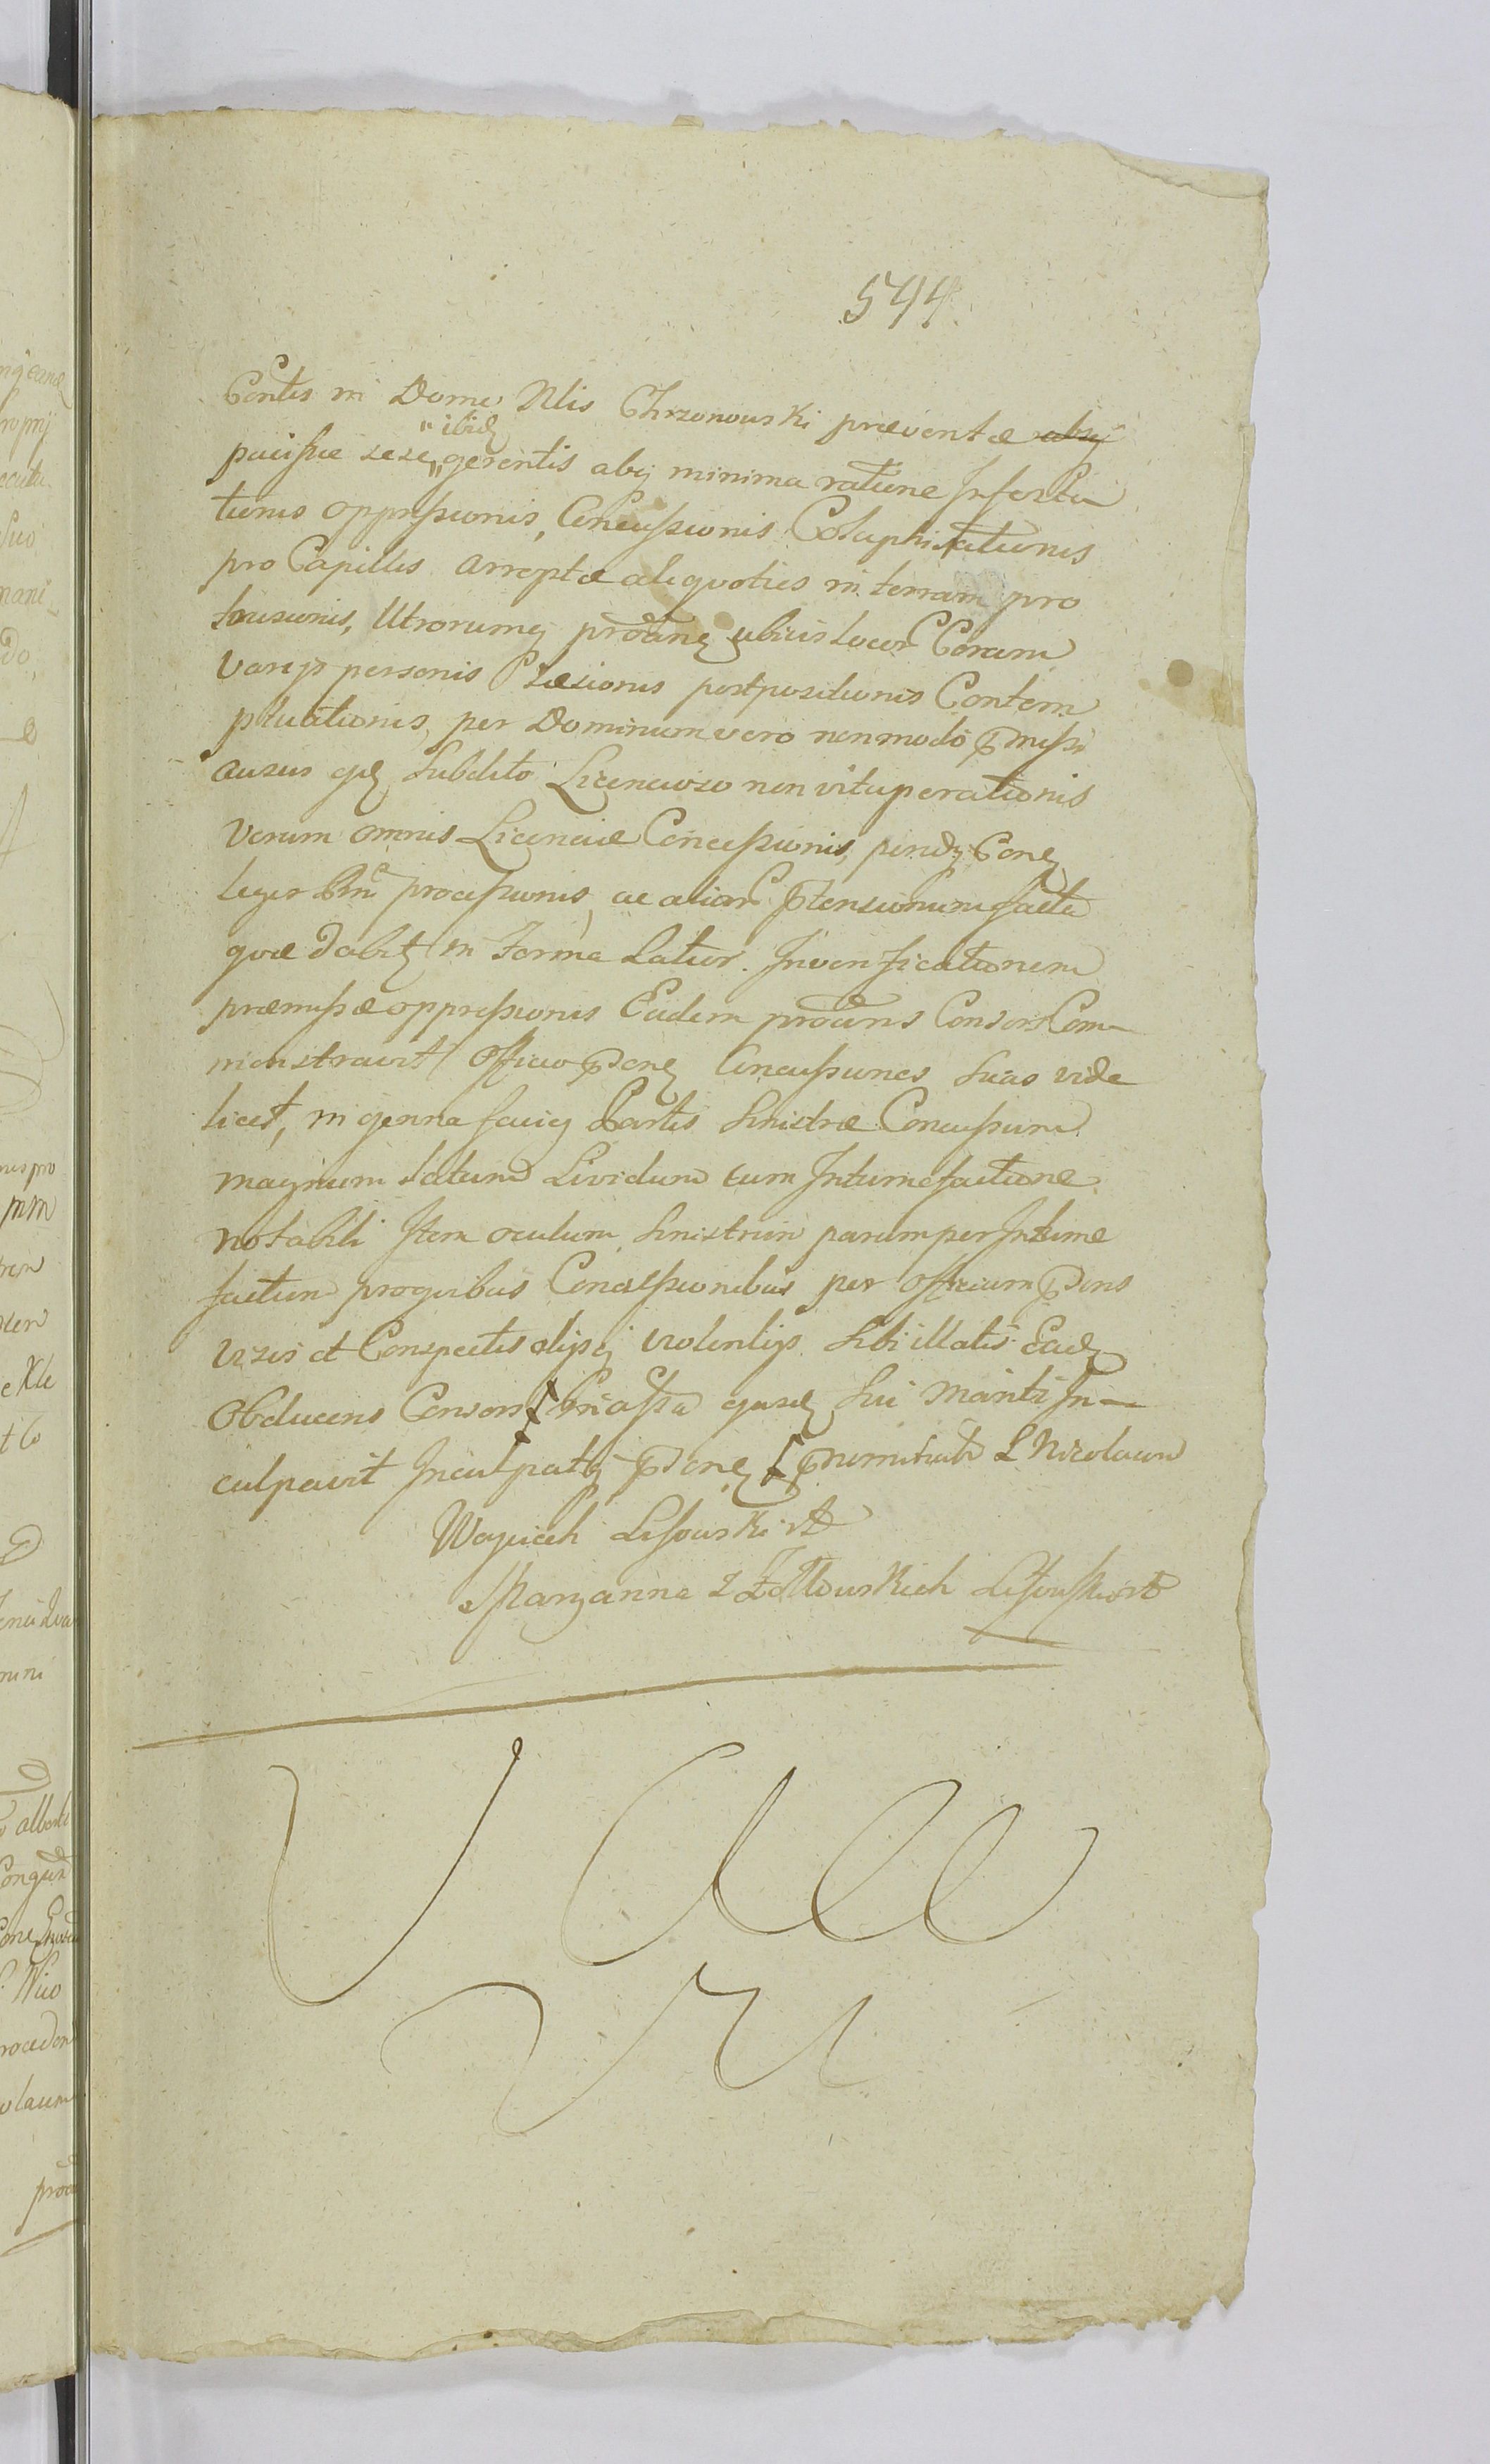 544.
Contis in Domo Nlis Chrzonowski præventæ absq
ibid
pacifice sese gerentis absq minima ratione Infesta
tionis oppressionis, Concussionis Colaphisationis
pro Capillis arreptæ aliquoties in terram pro
trusionis, Utrorumq protane ubivis locor Coram
varijs personis Læsionis postpositionis Contem
ptuationis, per Dominum vero nonmodo pmissi
ausus ejd Subdito Licencioso non vituperationis
Verum omnis Licenciæ Concessionis, pendq Cone
leger processionis, ac alior ptensionum facta
quæ dabit in Forma Latior. Inverificationem
præmissæ oppressionis Eadem protans Consors Com
monstravit Officio pdene Concussiones Suas vide
licet, in genna faciej Partis Sinistræ Concussum
magnum Latum Lividum cum Intumefactione
notabili Item oculum Sinistrum parumper Intume
factum proquibus Concussionibus per Officium pdens
vizis et Conspectis alijsq violentijs Sibi illatis Ead
Obducens Consors ejusd Sui Mariti In
culpavit Inculpatq pdene pnominat L Nicolaum
Woyciech Lisowski
Maryanna z Zołtowskich Lisowska